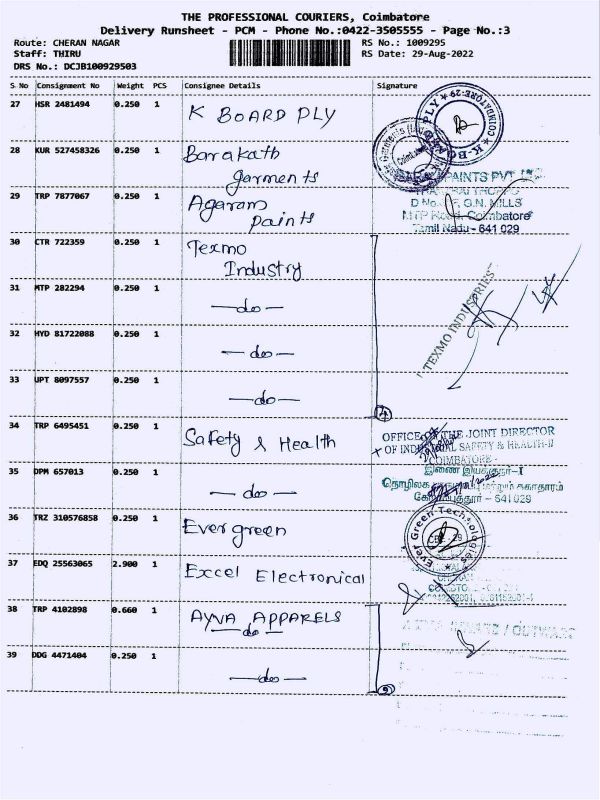 THE PROFESSIONAL COURIERS, Coimbatore
Delivery Runsheet - PCM - Phone No.:0422-3505555 - Page No.:3
Route: CHERAN NAGAR
RS No.: 1009295
Staff: THIRU
RS Date: 29-Aug-2022
DRS No.: DCJB100929503
S No Consignment No Weight PCS Consignee Details Signature
27 HSR 2481494 0.250 1 K BOARD PLY
28 KUR 527458326 0.250 1 Barakath
garments
29 TRP 7877067 0.250 1 Agaram
paints
PAINTS PVT
G.N. MILLS
MTP Road, Coimbatore
Tamil Nadu - 641 029
30 CTR 722359 0.250 1 Texmo
Industry
31 MTP 282294 0.250 1 —do—
TEXMO INDUSTRIES
32 HYD 81722088 0.250 1 —do—
33 UPT 8097557 0.250 1 —do—
4
34 TRP 6495451 0.250 1 Safety & Health
OFFICE OF THE JOINT DIRECTOR
OF INDUSTRIAL SAFETY & HEALTH-II
COIMBATORE
35 DPM 657013 0.250 1 —do—
இணை இயக்குநர்-I
36 TRZ 310576858 0.250 1 Evergreen
Ever Green Technologies
37 EDQ 25563065 2.900 1 Excel Electronical
38 TRP 4102898 0.660 1 AYVA APPARELS
—do—
/ OUTWARD
39 DDG 4471404 0.250 1 —do—